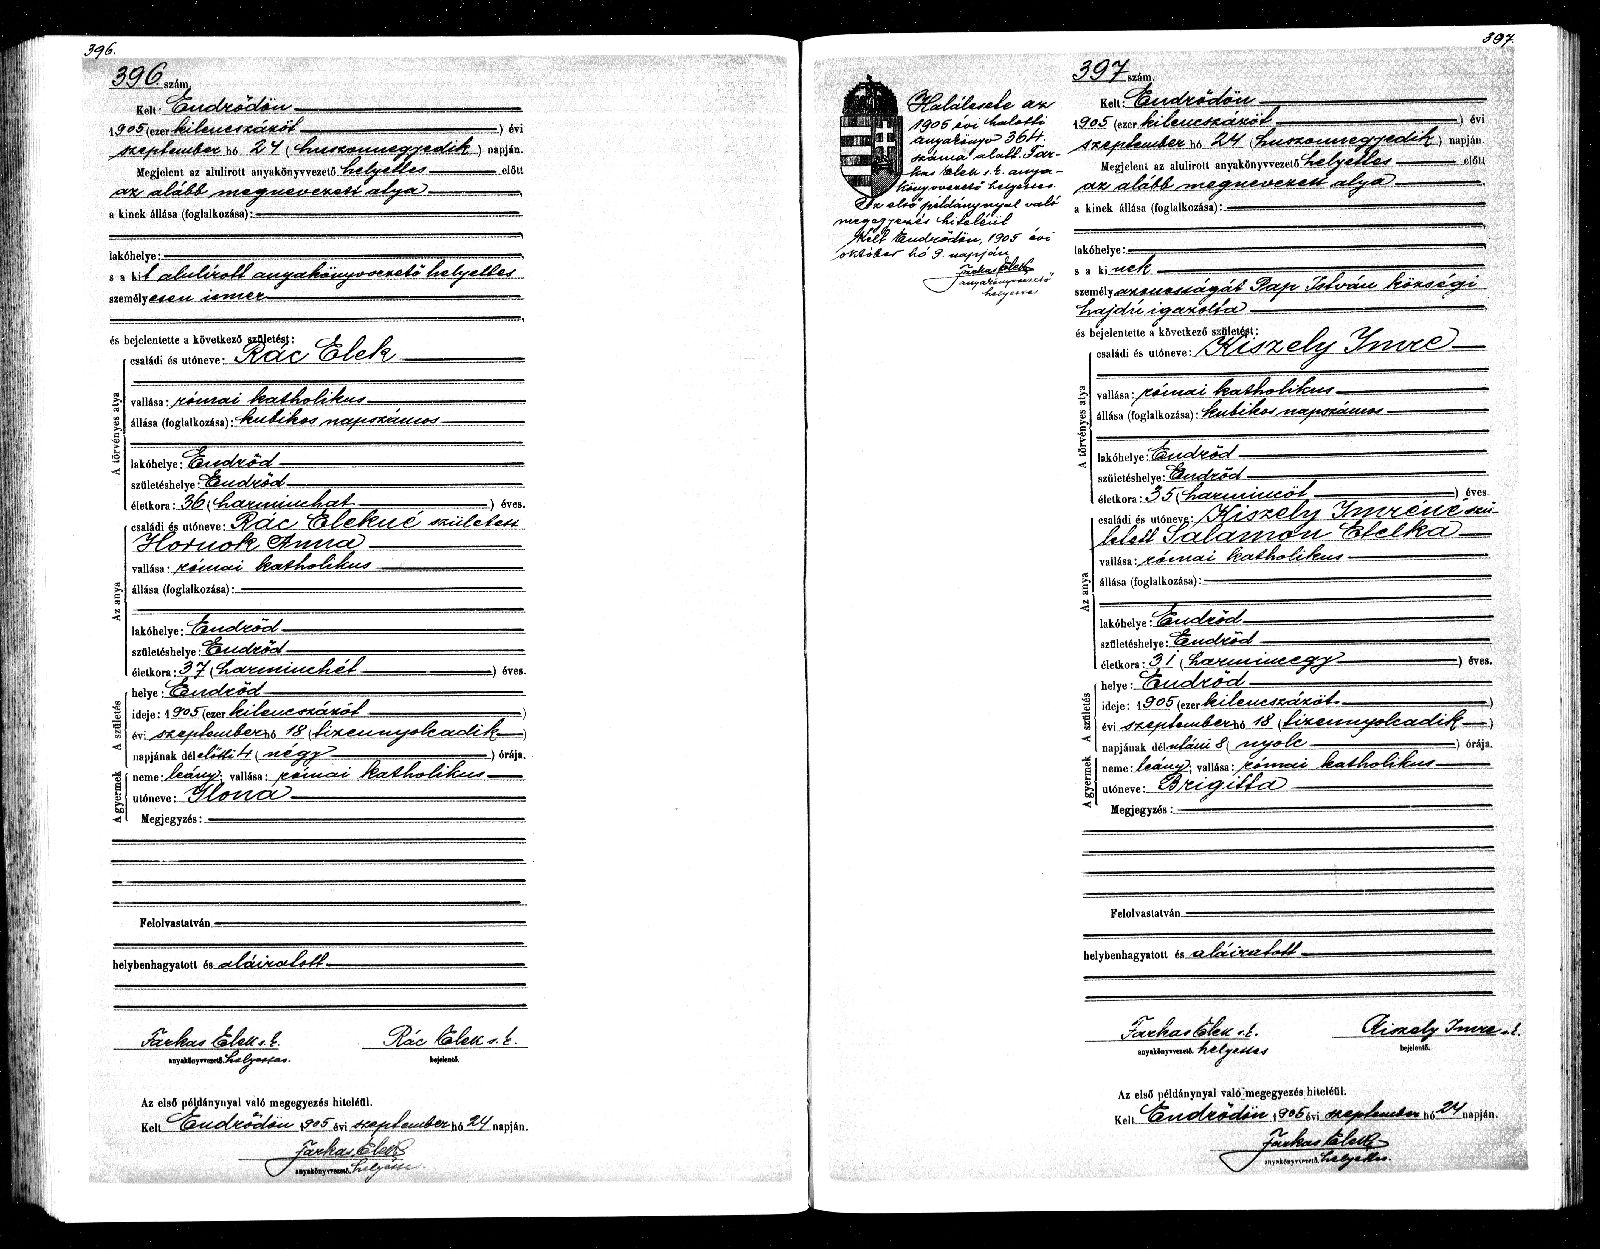 396.
396. szám.
Kelt: Endrődön
1905 (ezer kilencszázöt ) évi
szeptember hó 24 (huszonnegyedik) napján.
Megjelent az alulirott anyakönyvvezető helyettes előtt
az alább megnevezett atya
a kinek állása (foglalkozása):
lakóhelye:
s a kit alulírott anyakönyvvezető helyettes
személyesen ismer
és bejelentette a következő születést:
A törvényes atya
családi és utóneve: Rác Elek
vallása: római katholikus
állása (foglalkozása): kubikos napszámos
lakóhelye: Endrőd
születéshelye: Endrőd
életkora: 36 (harminchat ) éves.
Az anya
családi és utóneve: Rác Elekné született
Hornok Anna
vallása: római katholikus
állása (foglalkozása):
lakóhelye: Endrőd
születéshelye: Endrőd
életkora: 37 (harminchét ) éves.
A születés
helye: Endrőd
ideje: 1905 (ezer kilencszázöt )
évi szeptember hó 18 (tizennyolcadik )
napjának délelőtti 4 (négy ) órája.
A gyermek
neme: leány; vallása: római katholikus
utóneve: Ilona
Megjegyzés:
Felolvastatván
helybenhagyatott és aláiratott
Farkas Elek s. k. Rác Elek s. k.
anyakönyvvezető helyettes. bejelentő.
Az első példánynyal való megegyezés hiteléül.
Kelt Endrődön 1905 évi szeptember hó 24 napján.
Farkas Elek
anyakönyvvezető. helyettes.
397.
Halálesete az
1905 évi halotti
anyakönyv 364.
száma alatt. Far-
kas Elek s. k. anya-
könyvvezető helyettes.
Az első példánynyal való
megegyezés hiteléül
Kelt Endrődön, 1905 évi
október hó 9. napján
Farkas Elek
anyakönyvvezető
helyettes
397 szám.
Kelt: Endrődön
1905 (ezer kilencszázöt ) évi
szeptember hó 24 (huszonnegyedik) napján.
Megjelent az alulirott anyakönyvvezető helyettes előtt
az alább megnevezett atya
a kinek állása (foglalkozása):
lakóhelye:
s a kinek
személyazonosságát Pap István községi
hajdú igazolta
és bejelentette a következő születést:
A törvényes atya
családi és utóneve: Kiszely Imre
vallása: római katholikus
állása (foglalkozása): kubikos napszámos
lakóhelye: Endrőd
születéshelye: Endrőd
életkora: 35 (harmincöt ) éves.
Az anya
családi és utóneve: Kiszely Imréné szü-
letett Salamon Etelka
vallása: római katholikus
állása (foglalkozása):
lakóhelye: Endrőd
születéshelye: Endrőd
életkora: 31 (harmincegy ) éves.
A születés
helye: Endrőd
ideje: 1905 (ezer kilencszázöt )
évi szeptember hó 18 (tizennyolcadik )
napjának délutáni 8 (nyolc ) órája.
A gyermek
neme: leány; vallása: római katholikus
utóneve: Brigitta
Megjegyzés:
Felolvastatván
helybenhagyatott és aláiratott
Farkas Elek s. k. Kiszely Imre s. k.
anyakönyvvezető. helyettes bejelentő.
Az első példánynyal való megegyezés hiteléül.
Kelt Endrődön 1905 évi szeptember hó 24 napján.
Farkas Elek
anyakönyvvezető. helyettes.